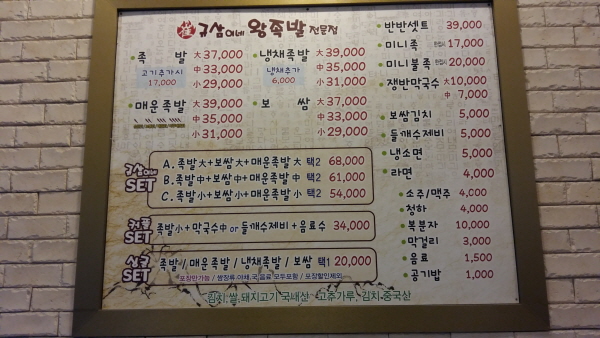 귀삼이네 왕족발 전문점
족 발 大 37,000
中 33,000
小 29,000
고기추가시
17,000
냉채족발 大 39,000
中 35,000
小 31,000
냉채추가
6,000
매운족발 大 39,000
中 35,000
小 31,000
보 쌈 大 37,000
中 33,000
小 29,000
SET
A. 족발 大+보쌈 大+매운족발 大 택2 68,000
B. 족발 中+보쌈 中+매운족발 中 택2 61,000
C. 족발 小+보쌈 小+매운족발 小 택2 54,000
커플 SET
족발 小+막국수 中 or 들깨수제비+음료수 34,000
싱글 SET
족발 / 매운족발 / 냉채족발 / 보쌈 택1 20,000
포장만가능 / 쌈장류 야채, 국 음료 모두포함 / 포장할인제외
김치 쌀, 돼지고기 국내산 고추가루, 김치 중국산
반반셋트 39,000
미니족 17,000
미니불족 20,000
쟁반막국수 大 10,000
中 7,000
보쌈김치 5,000
들깨수제비 5,000
냉소면 5,000
라면 4,000
소주/맥주 4,000
청하 4,000
복분자 10,000
막걸리 3,000
음료 1,500
공기밥 1,000